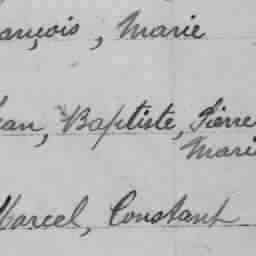 ançois, Marie
ean, Baptiste, Pierre
Marie
Marcel, Constant